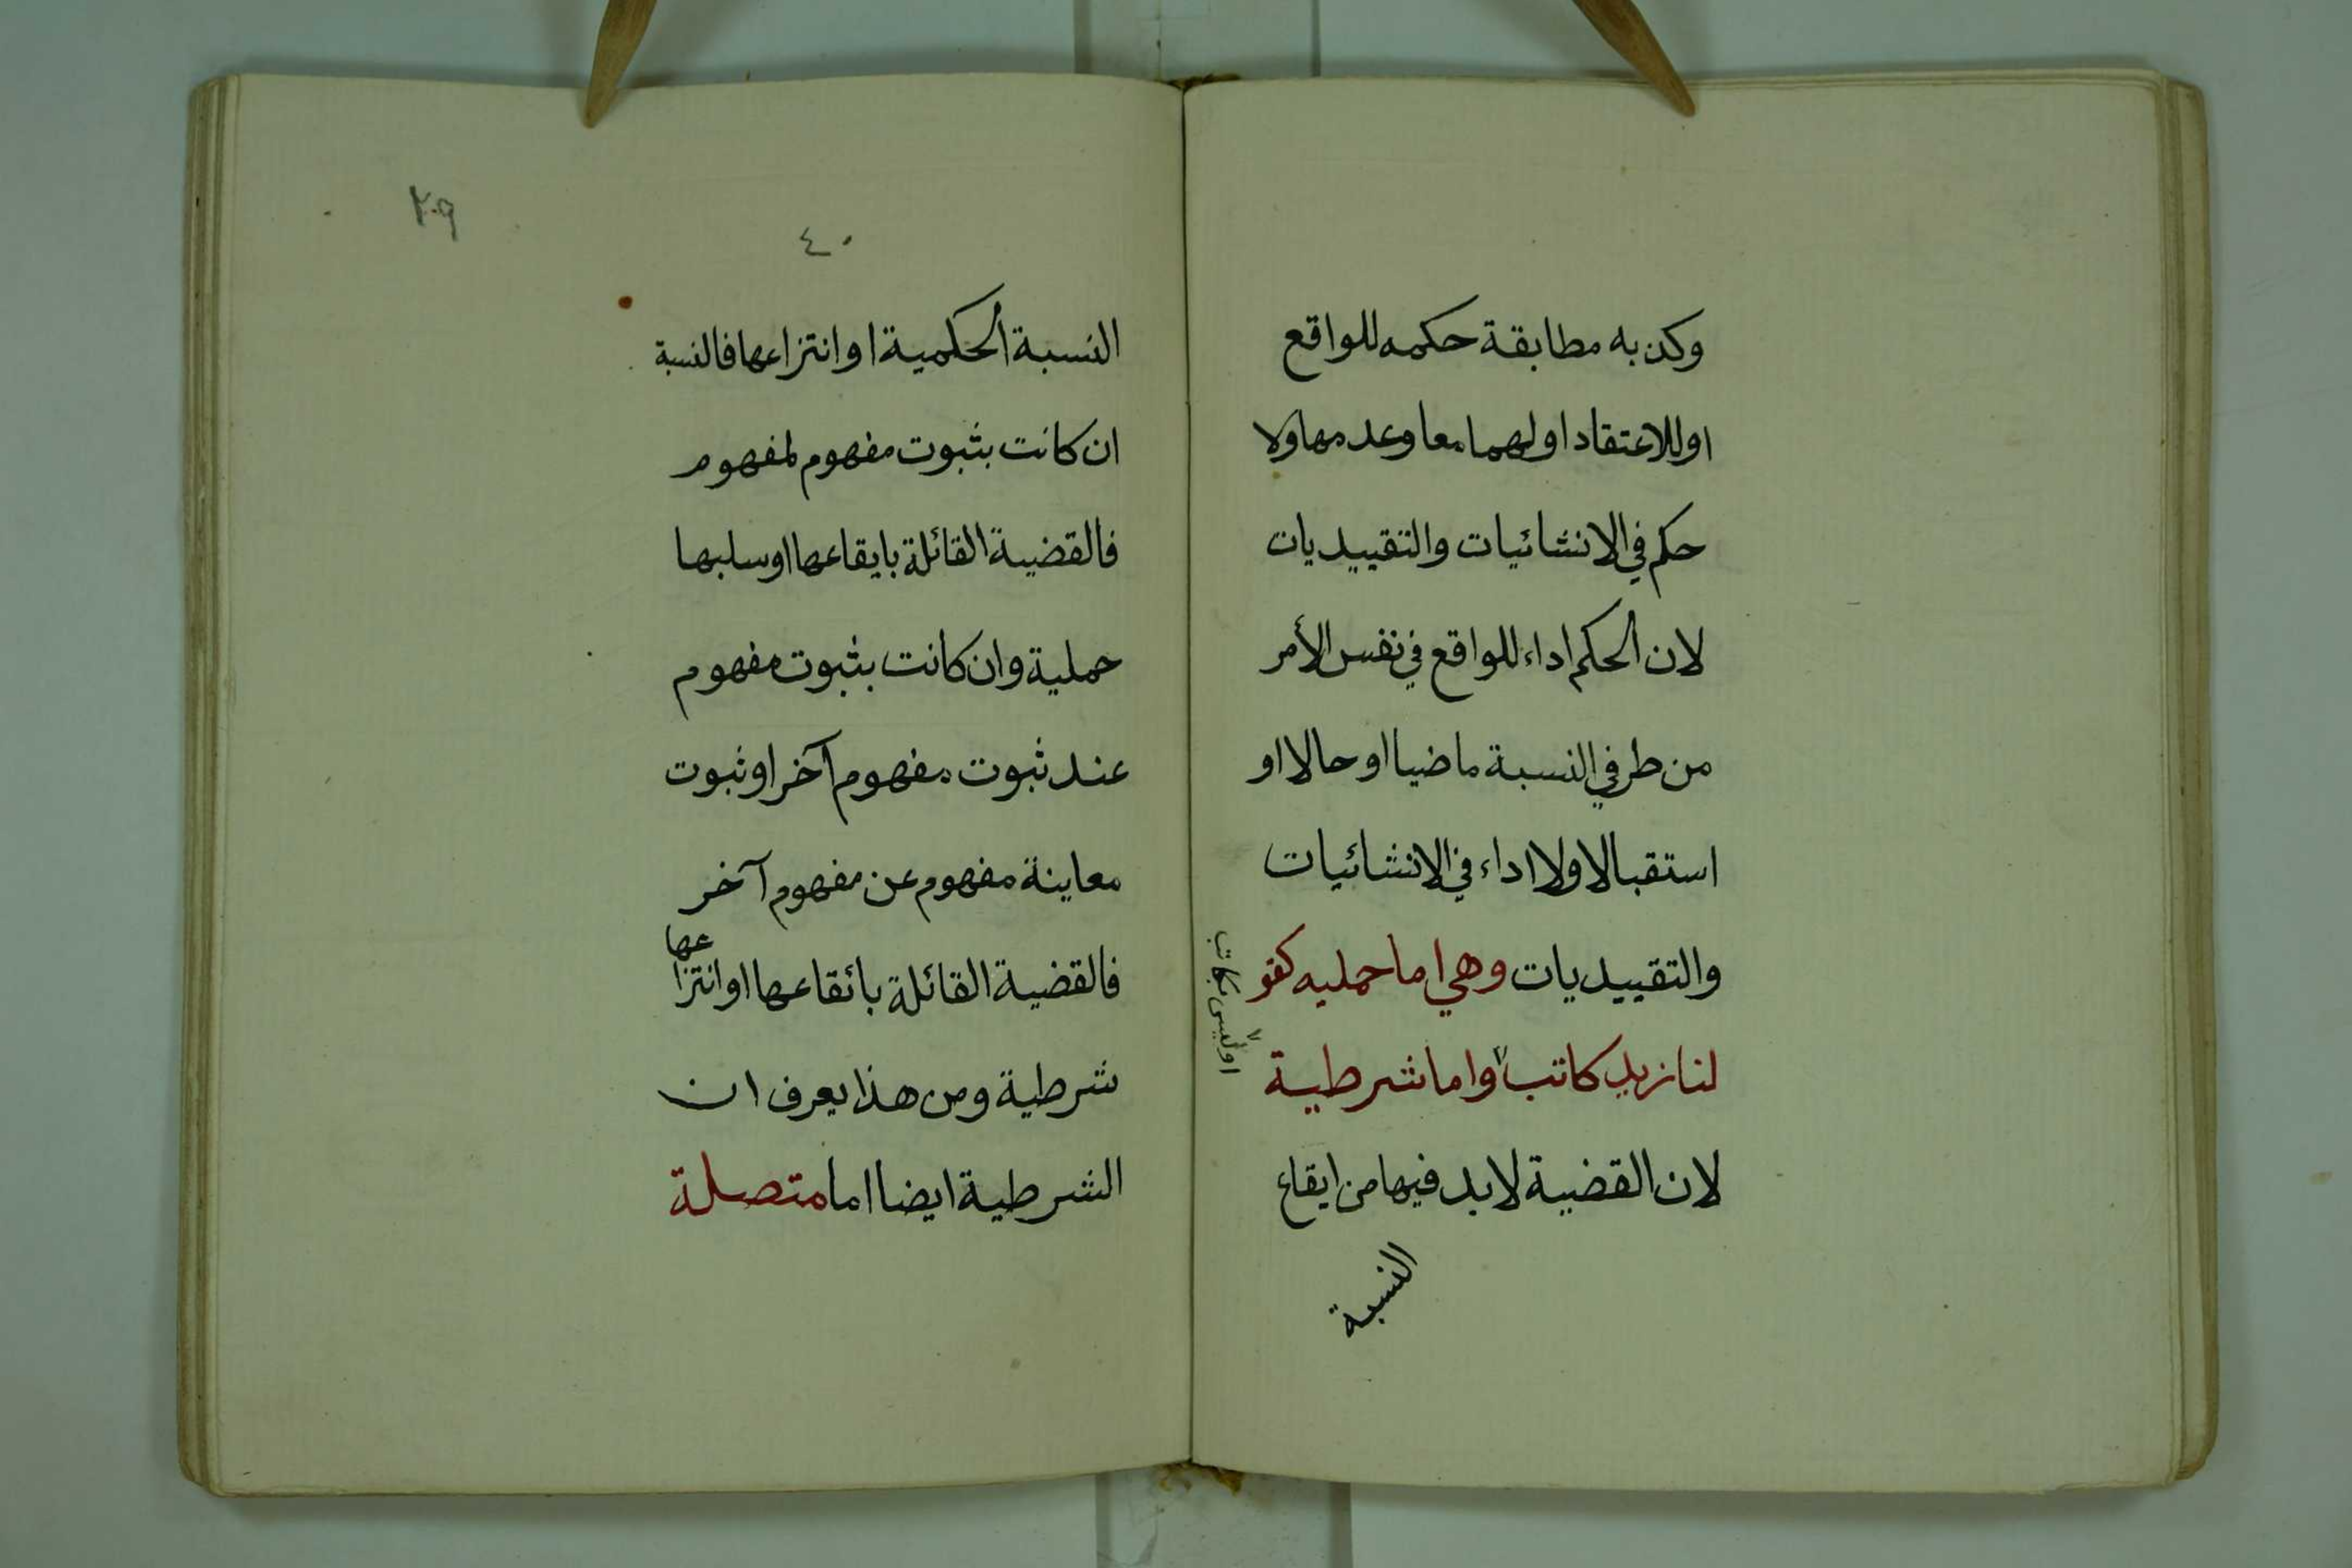 وكذبه مطابقة حكمه للواقع
او للاعتقاد اولهما معا وعدمها ولا
حكم في الانشائيات والتقييديات
لان الحكم اداء للواقع في نفس الأمر
من طرفي النسبة ماضيا او حالا او
استقبالا ولا اداء في الانشائيات
والتقييديات وهي اما حمليه كقو
لنا زيد كاتب واما شرطية
او ليس بكاتب
لان القضية لابد فيها من ايقاع
النسبة
٤٠
النسبة الحكمية او انتزاعها فالنسبة
ان كانت بثبوت مفهوم لمفهوم
فالقضية القائلة بايقاعها اوسلبها
حملية وان كانت بثبوت مفهوم
عند ثبوت مفهوم آخر او ثبوت
معاينة مفهوم عن مفهوم آخر
فالقضية القائلة بائقاعها او انتزاعها
شرطية ومن هذا يعرف ان
الشرطية ايضا اما متصلة